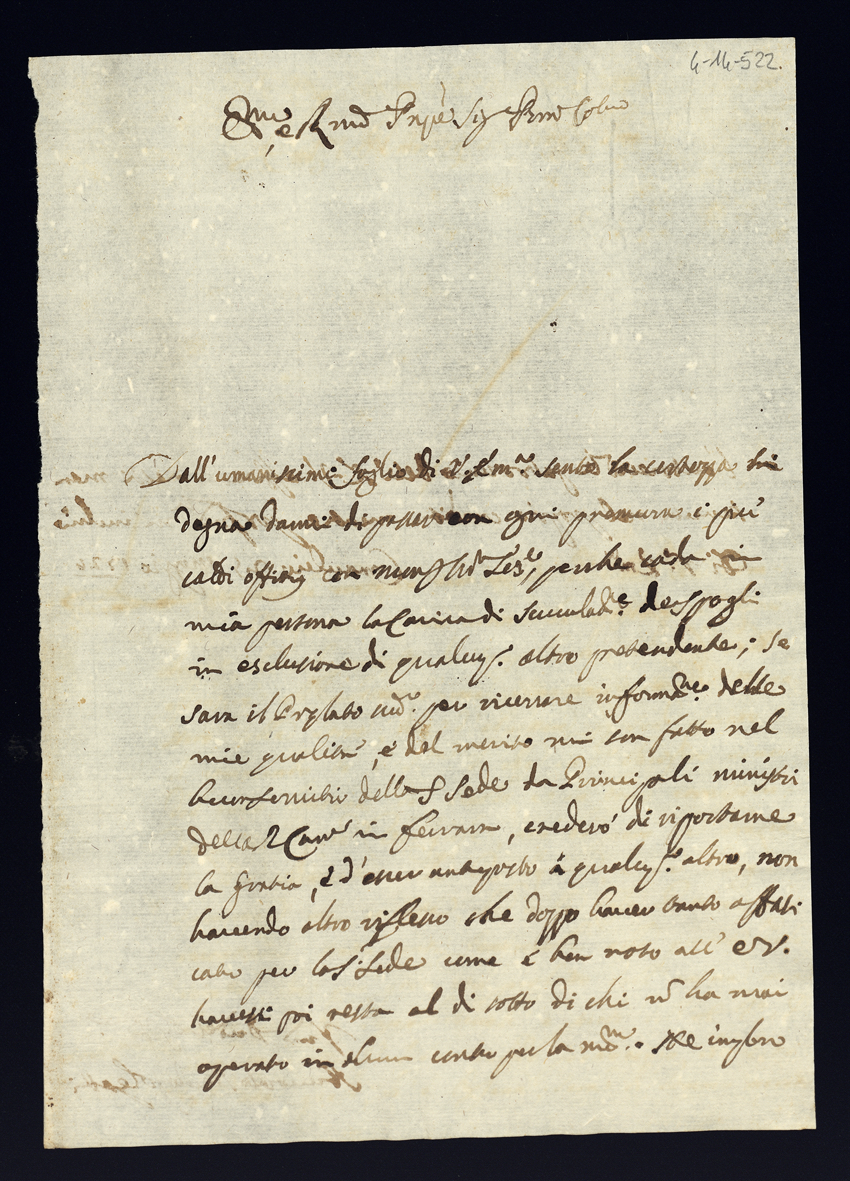 4-14-522.
Em̃o e Rmo Pñpe Sig Pron Colmo
Dall'umanissimo foglio di V. Em.ᵃ sento la certezza
degna darmi di passar con ogni premura i più
caldi offizij con Monsig.ʳ Tes.ᵉ, perche cada in
mia persona la Carica di Succolad.ᵉ de Spogli
in esclusione di qualuq.ᵉ altro pretendente; Se
sara il Prelato sud.ᵒ per ricevere inform.ⁿᵉ delle
mie qualità, e del merito mi son fatto nel
haver servito della S Sede da Principali ministri
della R Cam.ᵃ in Ferrara, crederò di riportarne
la grazia, e d'esser anteposto à qualuq.ᵉ altro, non
havendo altro riflesso che doppo haver tanto affati
cato per la S. Sede come è ben noto all' E V.
havessi poi restar al di sotto di chi nõ ha mai
operato in alcun conto per la med.ᵐᵃ. Se